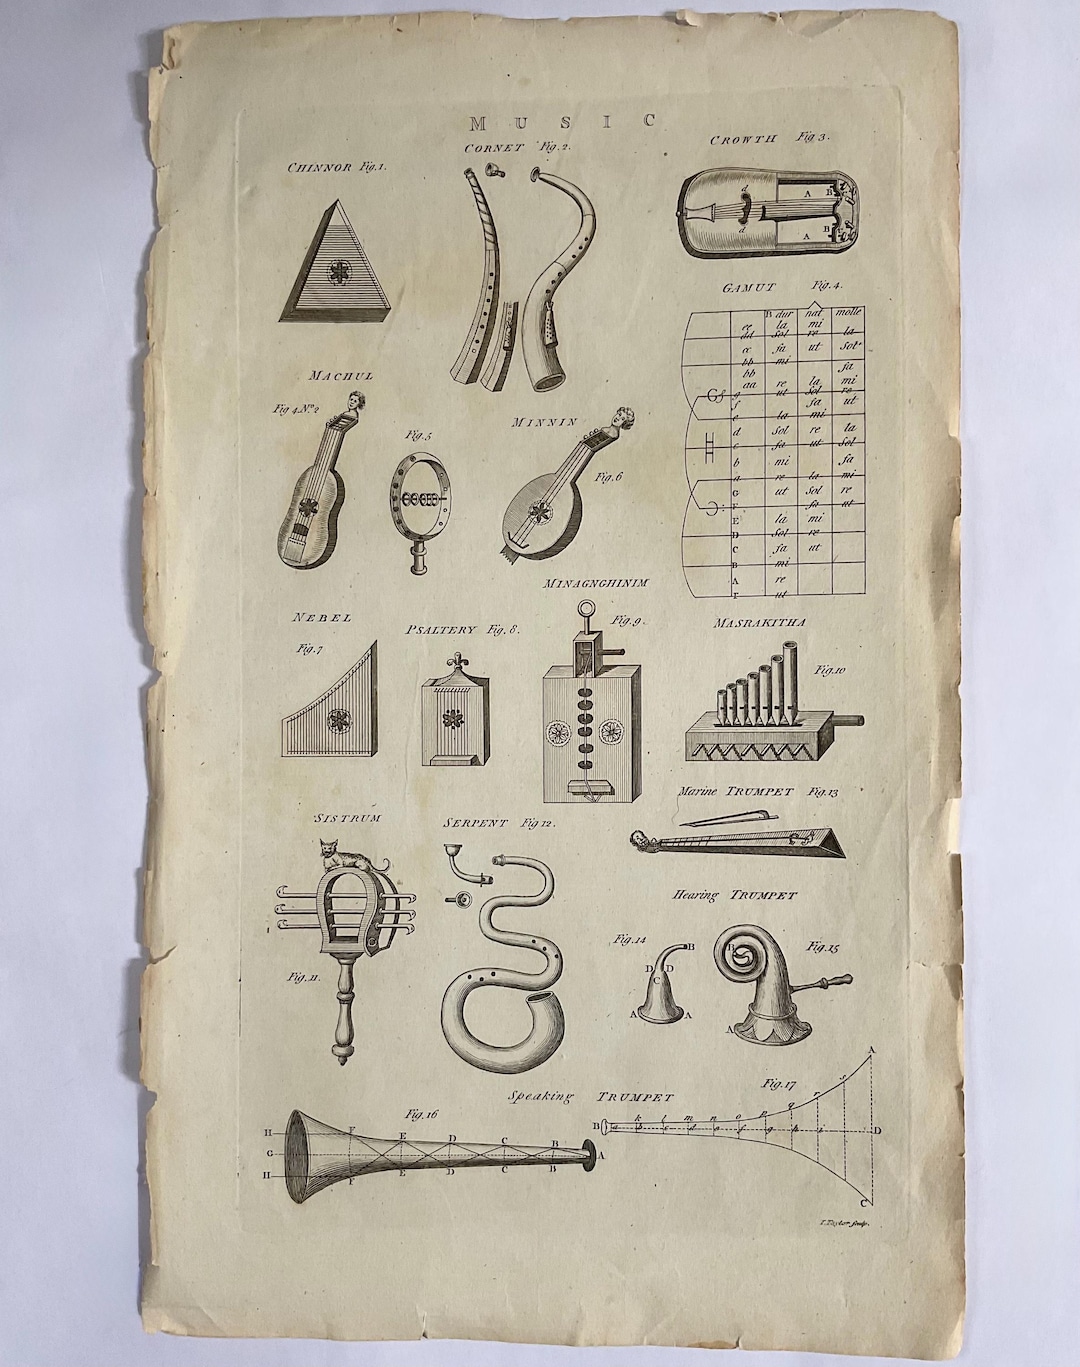 MUSIC
CHINNOR Fig. 1.
CORNET Fig. 2.
CROWTH Fig 3.
d
d
A
B
A
B
GAMUT Fig. 4.
B dur nat molle
ee la mi
dd sol re la
cc fa ut sol
bb mi
bb fa
aa re la mi
g ut sol re
f fa ut
e la mi
d sol re la
c fa ut sol
b mi fa
a re la mi
G ut sol re
F fa ut
E la mi
D sol re
C fa ut
B mi
A re
Γ ut
MACHUL
Fig 4. No. 2
Fig. 5
MINNIN
Fig. 6
NEBEL
Fig. 7
PSALTERY Fig. 8.
MINAGNGHINIM
Fig. 9.
MASRAKITHA
Fig. 10
SISTRUM
Fig. 11.
SERPENT Fig 12.
Marine TRUMPET Fig. 13
Hearing TRUMPET
Fig. 14
B
D D
C
A A
Fig. 15
B
A
Speaking TRUMPET
Fig. 16
H F E D C B
G A
H F E D C B
Fig. 17
A
k l m n o p q r s
B a b c d e f g h i D
C
I. Taylor sculp.